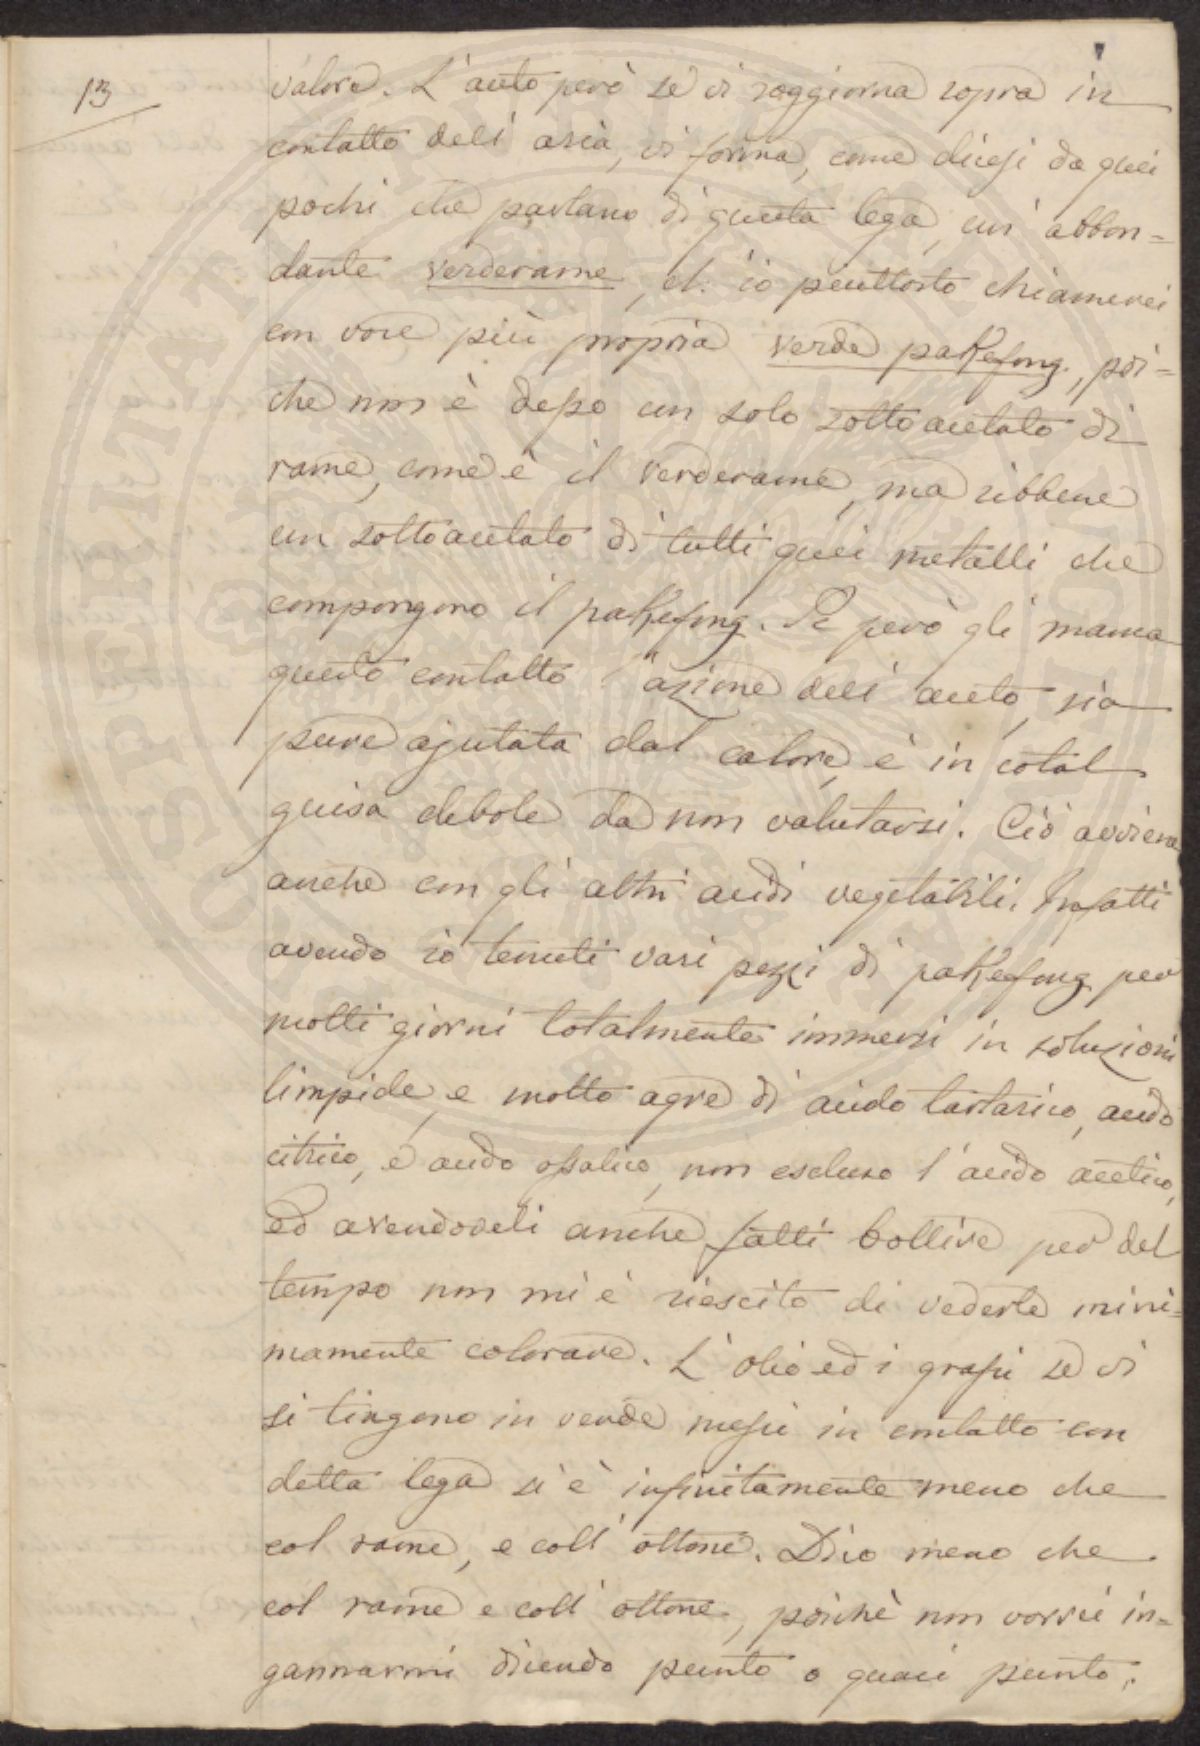 13
valore. L'aceto però se vi soggiorna sopra in
contatto dell'aria, vi forma, come dicesi da quei
pochi che parlano di questa lega, un'abbon=
dante verderame, ed io piuttosto chiamerei
con voce più propria verde pakefong, poi=
che non è desso un solo sottoacetato di
rame, come è il verderame, ma sibbene
un sottoacetato di tutti quei metalli che
compongono il pakefong. Se però gli manca
questo contatto l'azione dell'aceto, sia
pure ajutata dal calore, è in cotal
guisa debole da non valutarsi. Ciò avviene
anche con gli altri acidi vegetabili. Infatti
avendo io tenuti vari pezzi di pakefong per
molti giorni totalmente immersi in soluzioni
limpide, e molto agre di acido tartarico, acido
citrico, e acido ossalico, non escluso l'acido acetico,
ed avendoveli anche fatti bollire per del
tempo non mi è riescito di vederle mini=
mamente colorare. L'olio ed i grassi se vi
si tingono in verde messi in contatto con
detta lega si è infinitamente meno che
col rame, e coll'ottone. Dico meno che
col rame e coll'ottone, poichè non vorrei in=
gannarmi dicendo punto o quasi punto.
SPERITAT